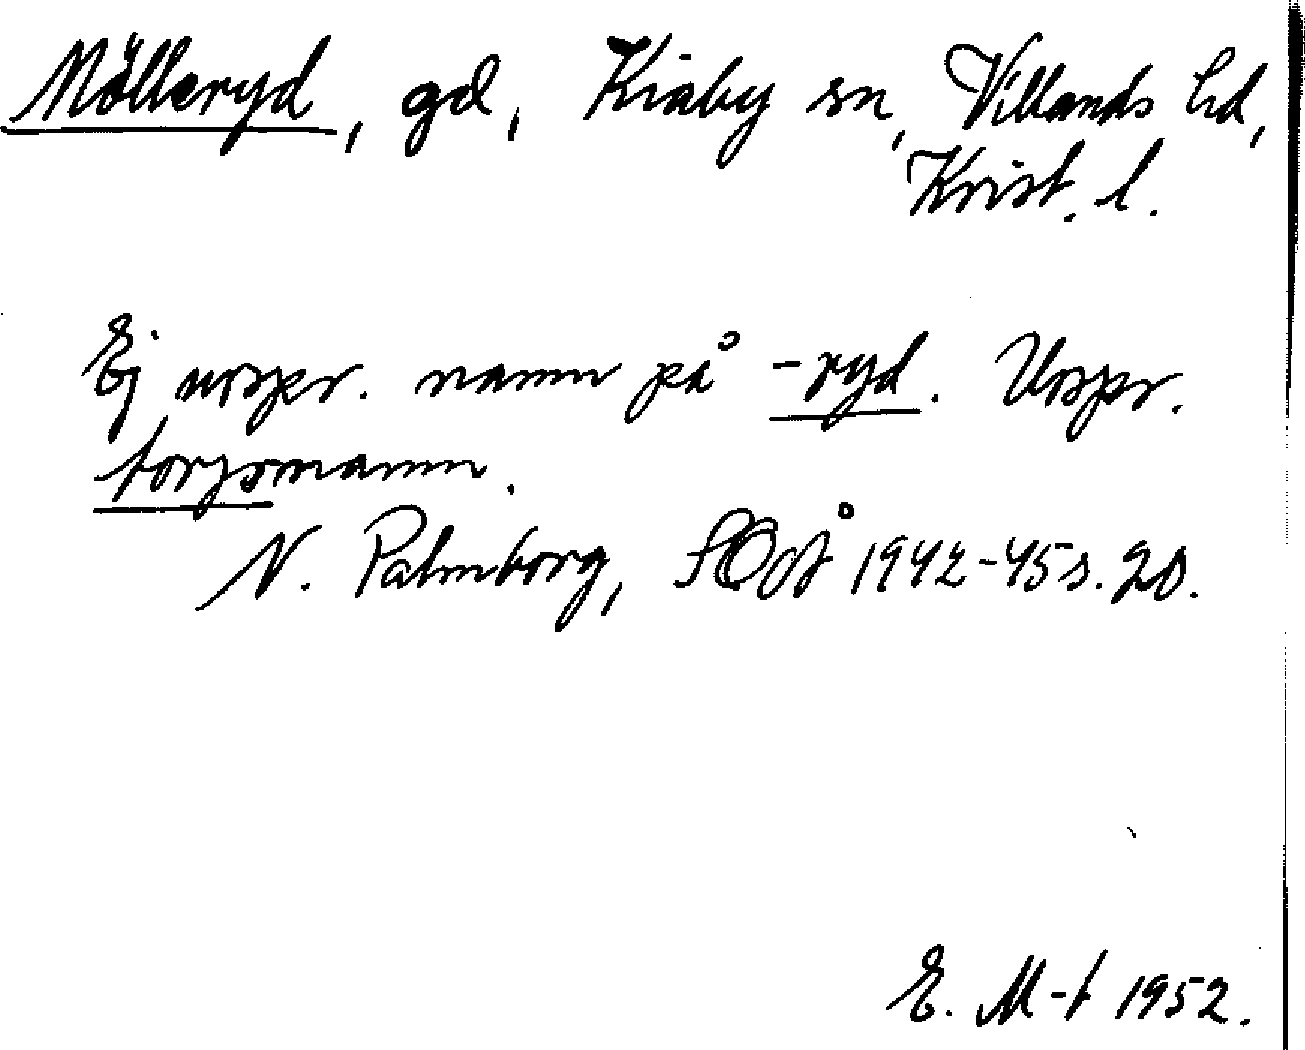 Mölleryd, gd, Kiaby sn, Villands hd,
Krist. l.
Ej urspr. namn på -ryd. Urspr.
torpsnamn.
N. Palmborg, SOÅ 1942-45 s. 20.
E. M-t 1952.